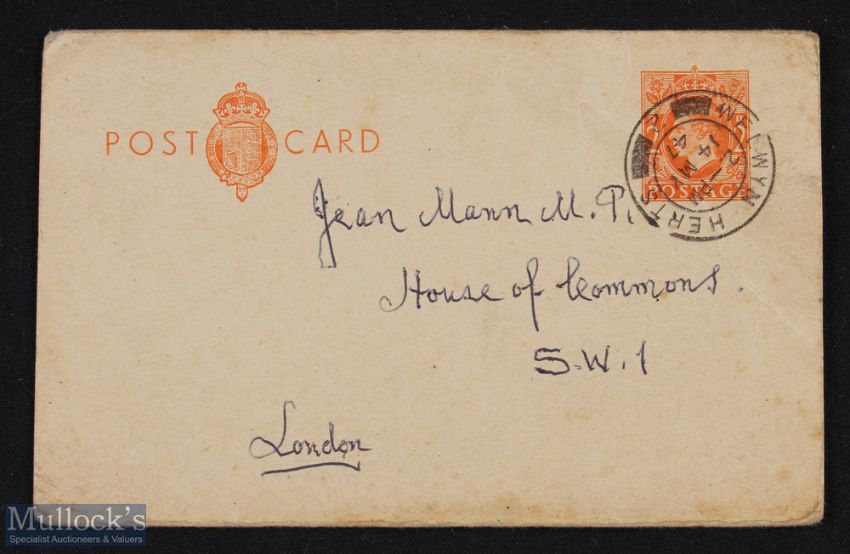 POST CARD
POSTAGE
WELWYN HERTS
2
PM
14
47
Jean Mann M.P.
House of Commons.
S.W.1
London
Mullock's
Specialist Auctioneers & Valuers